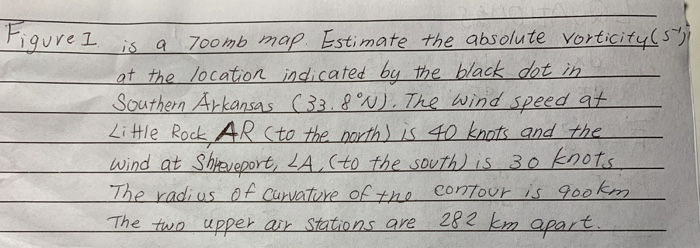 Figure I. is a 700mb map. Estimate the absolute vorticity (s⁻¹)
at the location indicated by the black dot in
Southern Arkansas (33.8°N). The wind speed at
Little Rock, AR (to the north) is 40 knots and the
wind at Shreveport, LA, (to the south) is 30 knots.
The radius of curvature of the contour is 900km
The two upper air stations are 282 km apart.